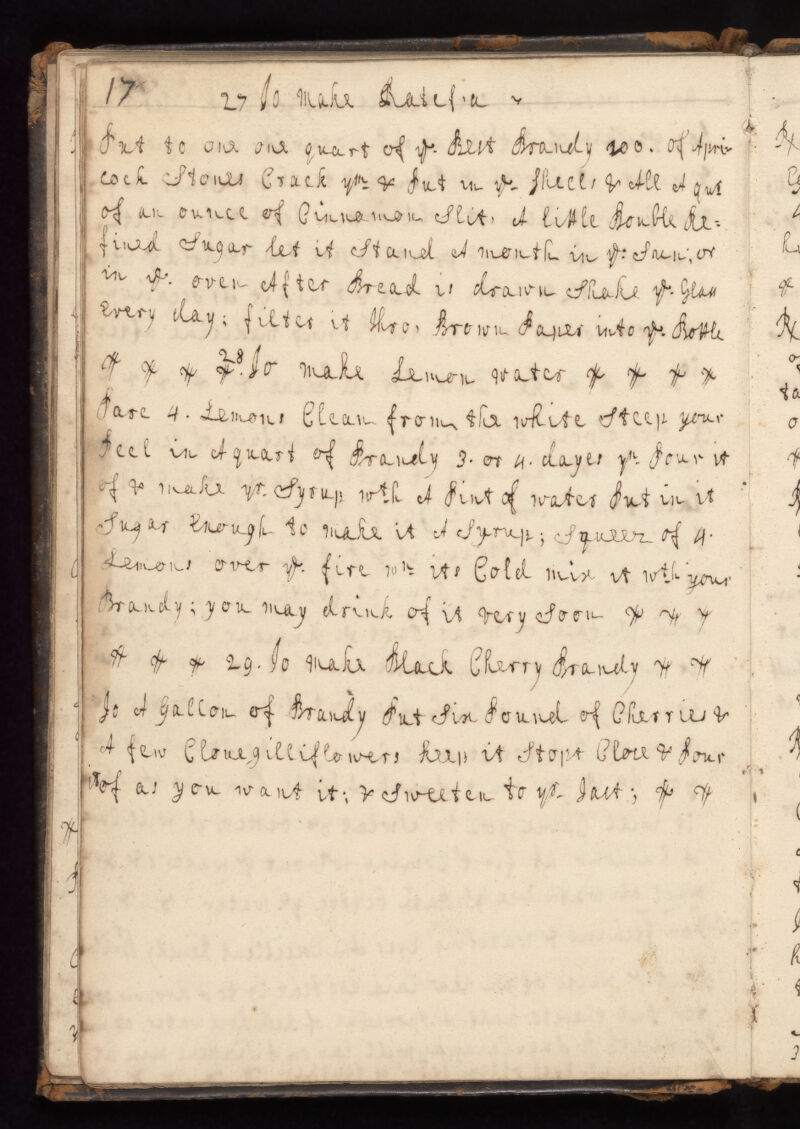 17
27 To make Ratefia
Put to one one quart of ye. Best Brandy 100. of Apri-
cock Stones Crack ym & Put in ye. Shells & All A qut
of an ounce of Cinnamon Slit, A little Double Re=
fined Sugar let it Stand A month in ye: Sun; or
in ye. oven After Bread is drawn Shake ye. Glass
Every day; filter it thro, Brown Paper into ye. Bottle
28. To make Lemon water
Pare 4. Lemons Clean from the white Steep your
Peel in A quart of Brandy 3. or 4. dayes yn. Pour it
of & make yr. Syrup wth A Pint of water Put in it
Sugar Enough to make it A Syrup; Squeez of 4.
Lemons over ye. fire wn its Cold mix it wth your
Brandy; you may drink of it very Soon
29. To make Black Cherry Brandy
To A Gallon of Brandy Put Six Pound of Cherries &
A few Clouegilliflowers keep it Stopt Close & Pour
it of as you want it; & Sweeten to yr. Tast;